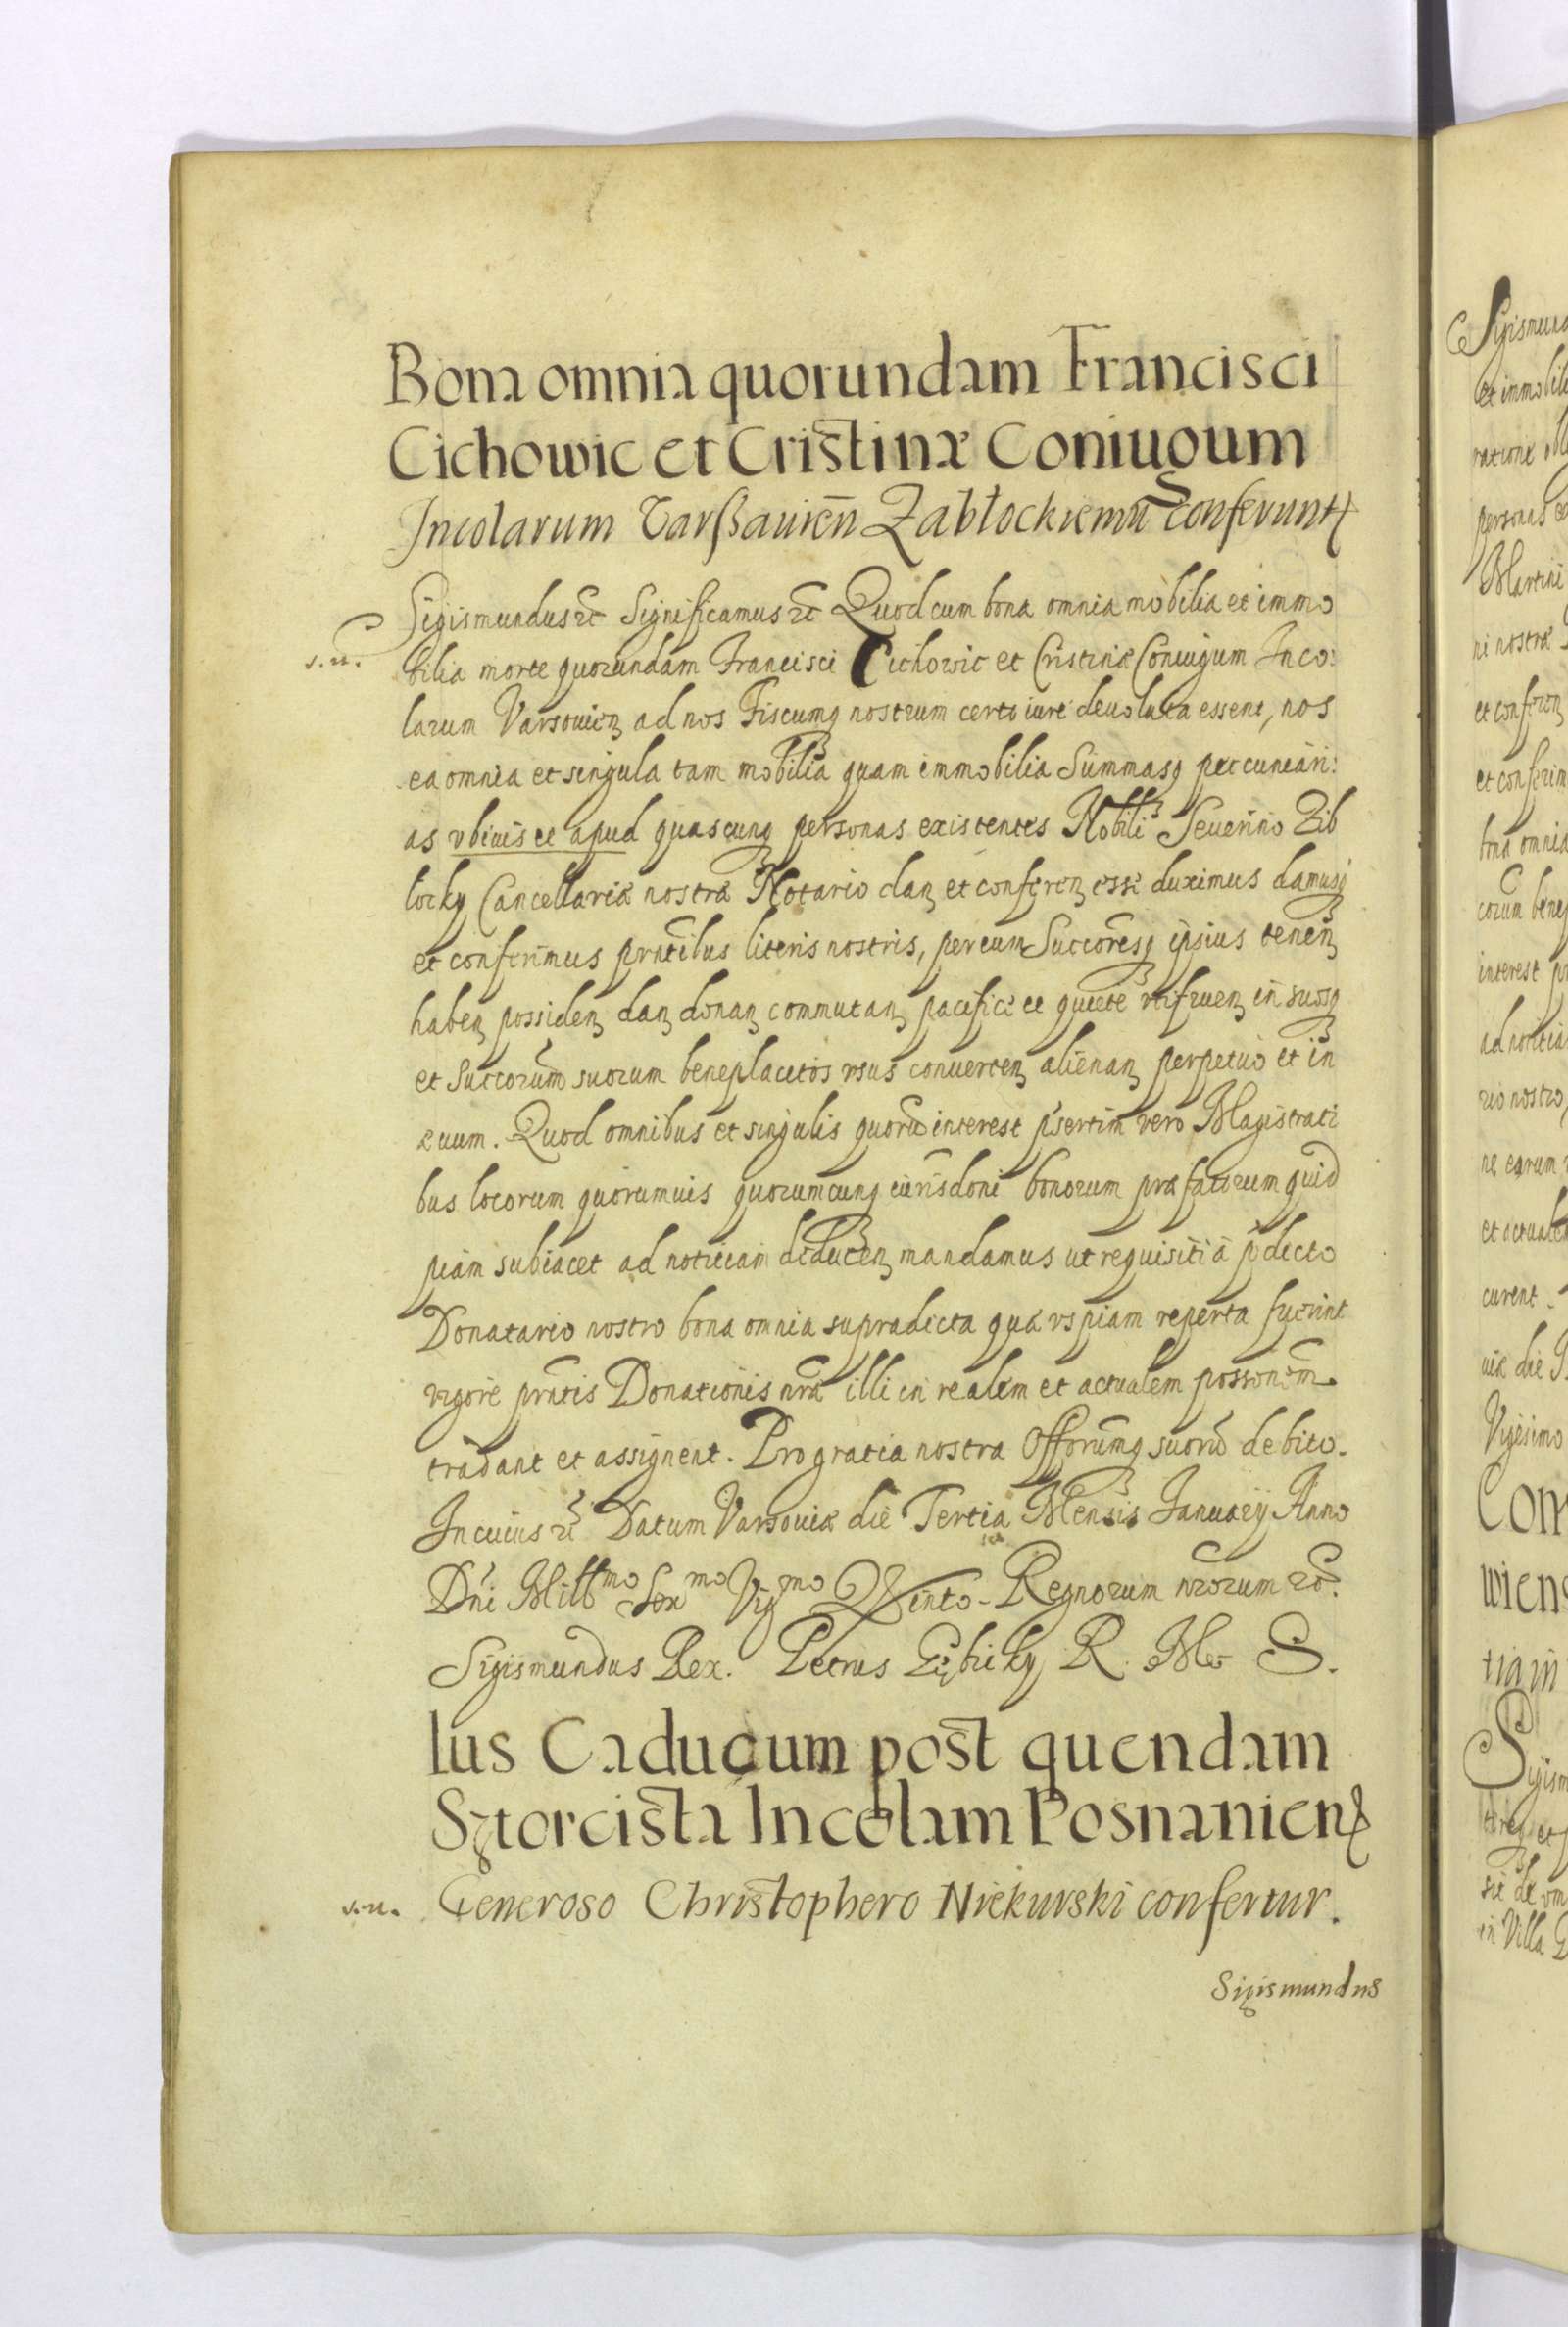 Bona omnia quorundam Francisci
Cichowic et Cristinæ Coniugum
Incolarum Varßauień Zabłockiemu conferunt
Sigismundus etc Significamus etc Quod cum bona omnia mobilia et immo
s.n. bilia morte quorundam Francisci Cichowic et Cristinæ Coniugum Inco:
larum Varsouien ad nos Fiscumq nostrum certo iure deuoluta essent, nos
ea omnia et singula tam mobilia quam immobilia Summasq peccuniari:
as vbiuis et apud quascunq personas existentes Nobili Seuerino Zab
łocky Cancellariæ nostræ Notario dan et conferen esse duximus damusq
et conferimus pñtibus literis nostris, per eum Succoresq ipsius tenen
haben possiden dan donan commutan pacifice et quiete vtifruen in suosq
et Succorum suorum beneplacitos vsus conuerten alienan perpetuo et in
æuum. Quod omnibus et singulis quorũ interest p̃sertim vero Magistrati
bus locorum quorumuis quorumcunq iurisdoni bonorum præfatorum quid
piam subiacet ad notitiam deducen mandamus ut requisiti à p̃dicto
Donatario nostro bona omnia supradicta quæ vspiam reperta fuerint
vigore pñtis Donationis nrã illi in realem et actualem possonem
tradant et assignent. Pro gratia nostra Offorumq suorũ debito.
In cuius etc Datum Varsouiæ die Tertia Mensis Ianuarij Anno
Dñi Mill͞mo Sex mo Vig mo Qvinto - Regnorum nrorum etc.
Sigismundus Rex. Petrus Gębicky R. M. S.
Ius Caducum post quendam
Sztorcista Incolam Posnanien
s.n. Generoso Christophero Niekurski confertur.
Sigismundus